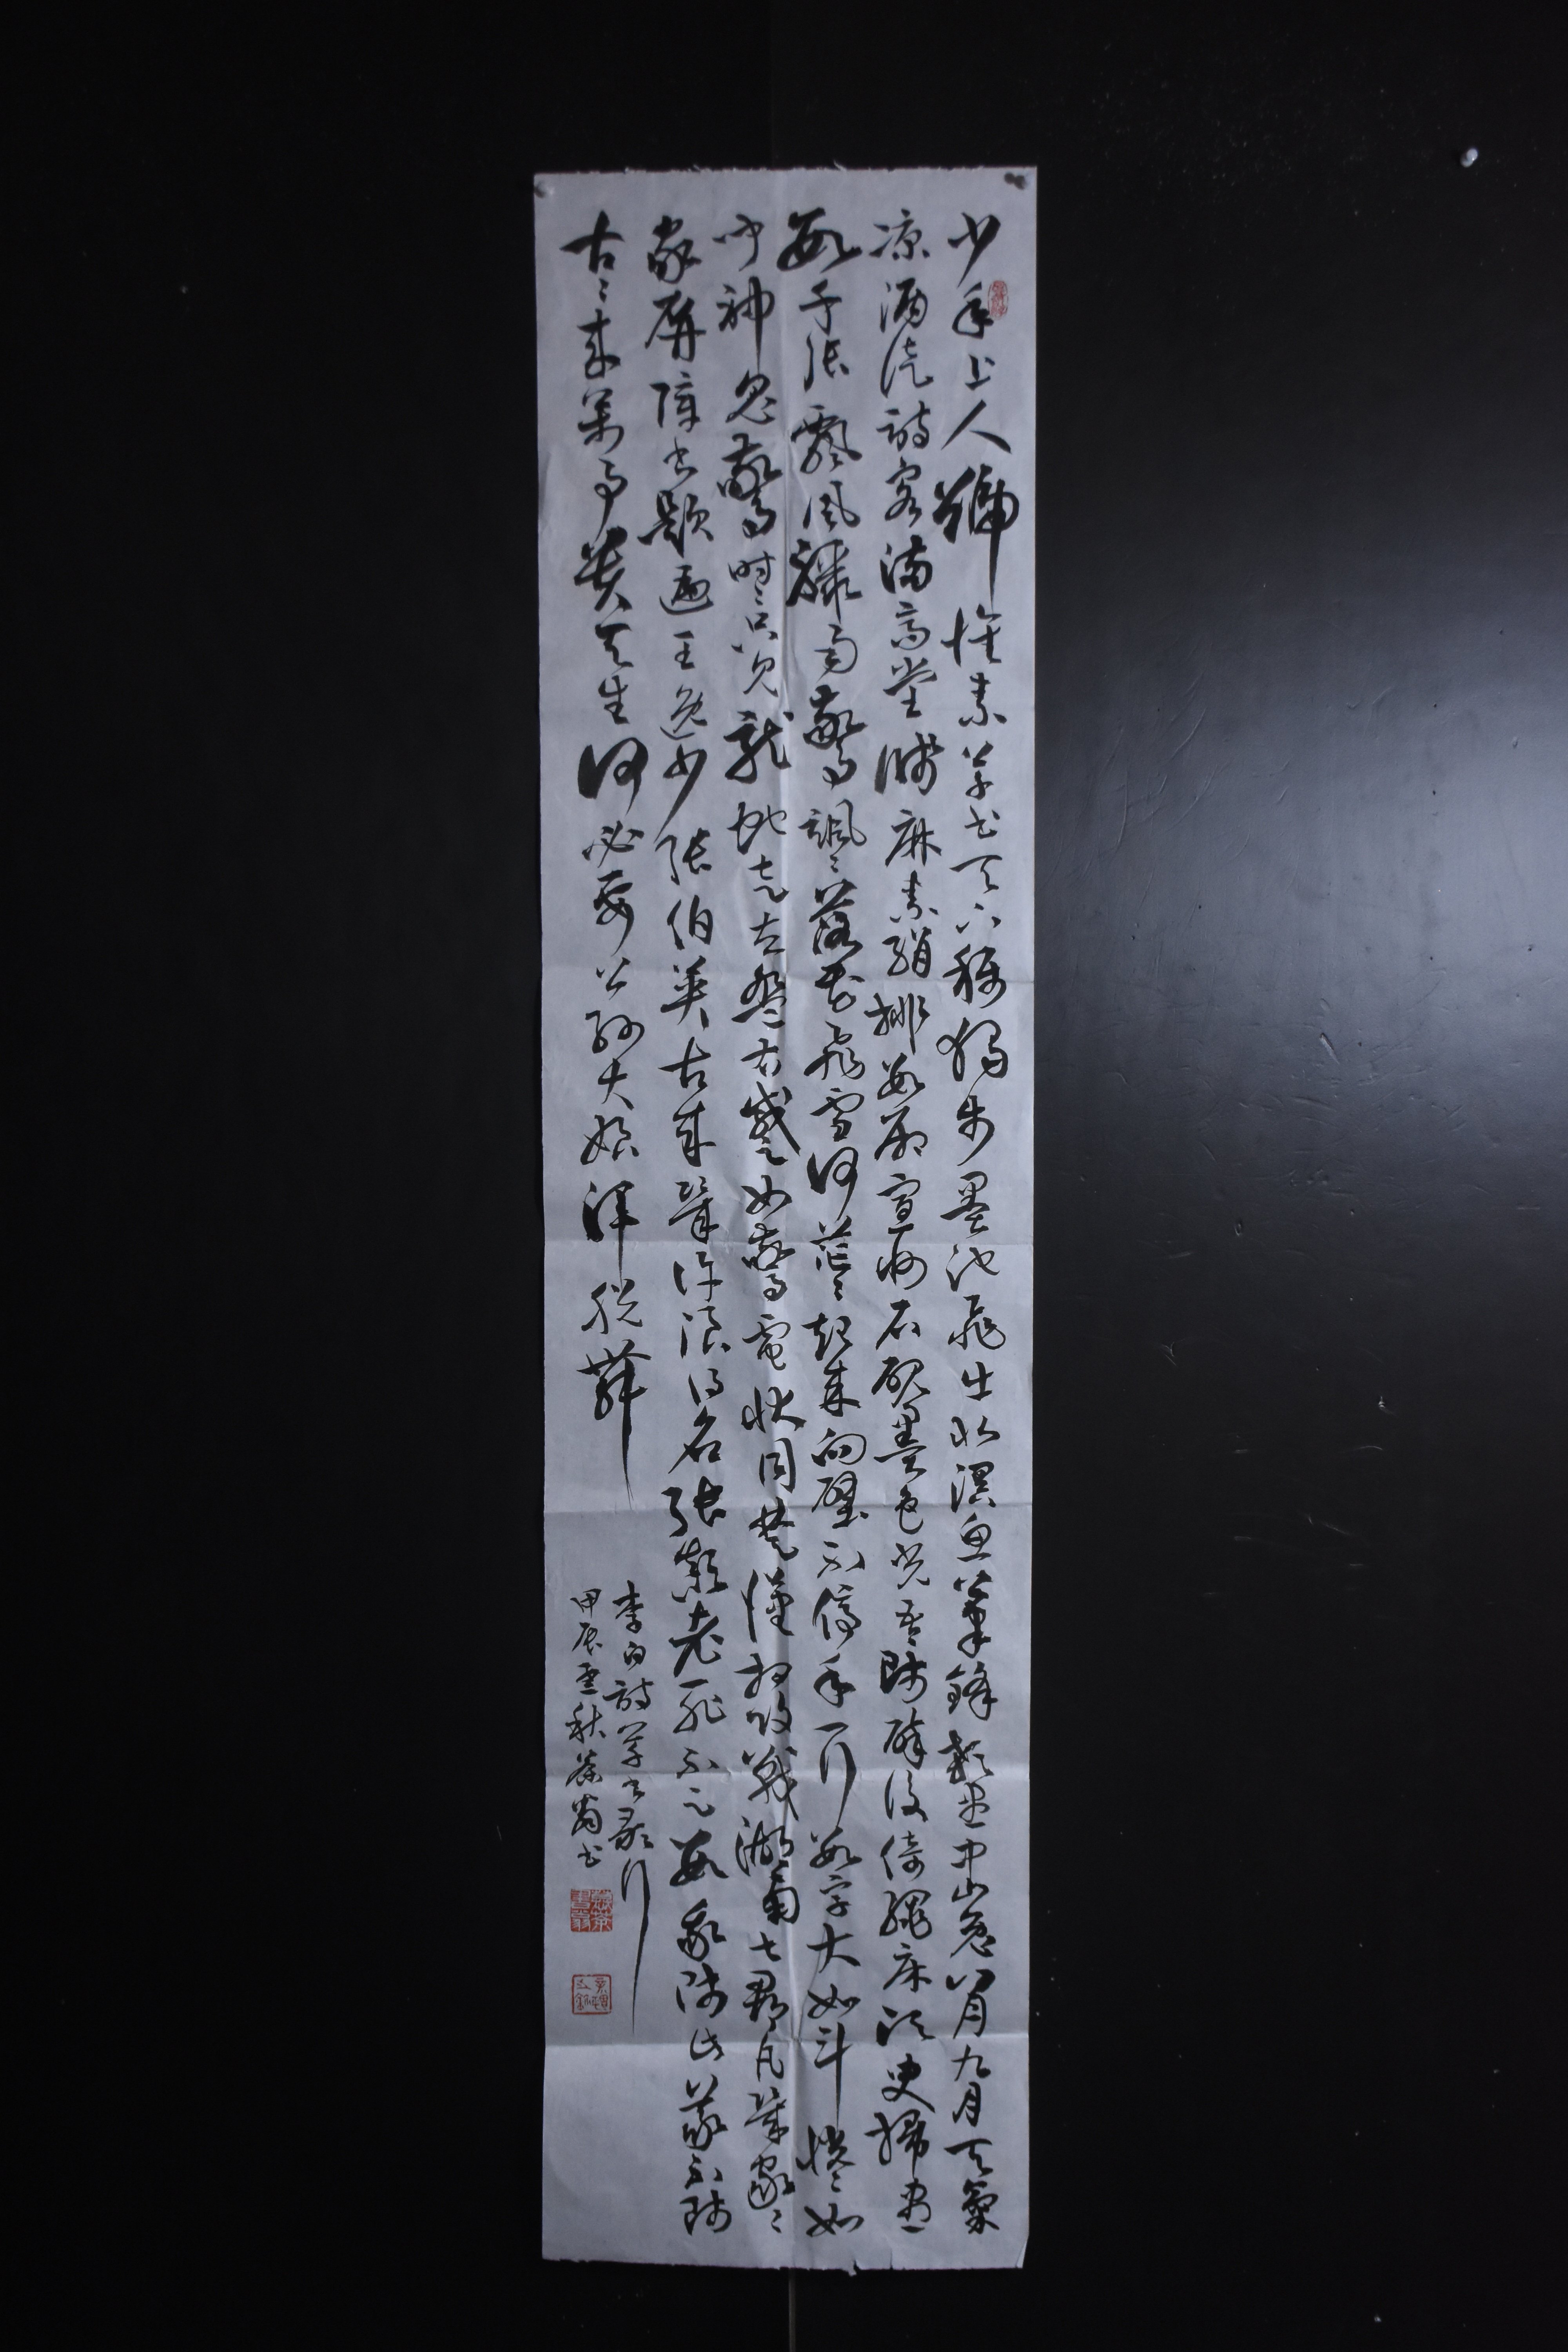 少年上人號懷素草書天下稱獨步墨池飛出北溟魚筆鋒殺盡中山兔八月九月天氣
凉酒徒詞客滿高堂牋麻素絹排數廂宣州石硯墨色光吾師醉後倚繩床須臾掃盡
數千張飄風驟雨驚颯〻落花飛雪何茫〻起來向壁不停手一行數字大如斗怳〻如
聞神鬼驚時〻只見龍蛇走左盤右蹙如驚電狀同楚漢相攻戰湖南七郡凡幾家〻
家屏障書題遍王逸少張伯英古來幾許浪得名張顛老死不足數我師此義不師
古〻來萬事貴天生何必要公孫大娘渾脫舞
李白詩草書歌行
甲辰 秋 書